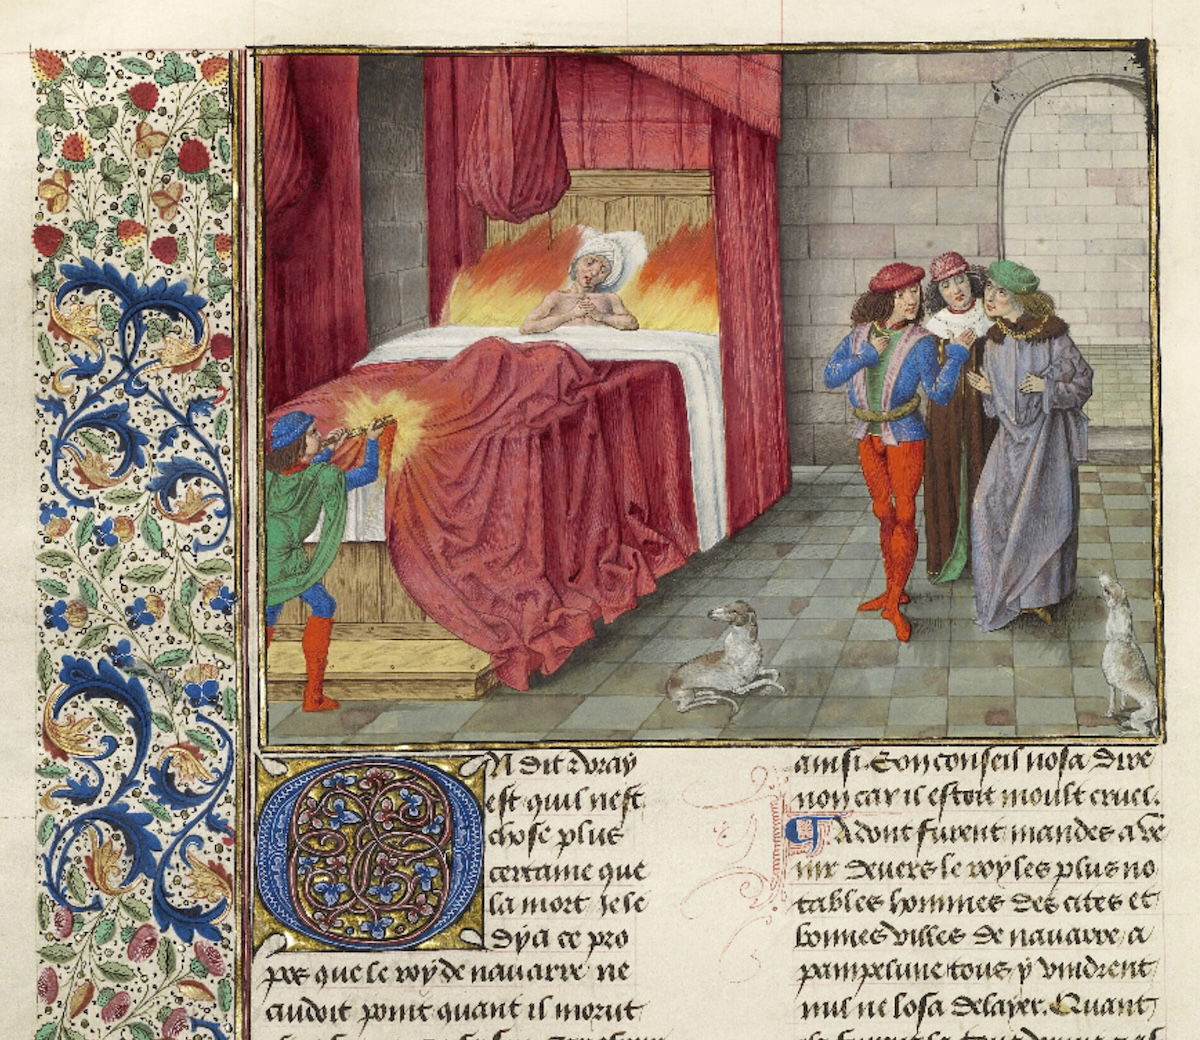 On dit & vray
est quil nest
chose plus
certaine que
la mort Je le
dy a ce pro
pos que le roy de nauarre ne
cuidoit point quant il morut
ainsi. Son conseil nosa dire
non car il estoit moult cruel.
Adont furent mandes a ve
nir deuers le roy les plus no
tables hommes des cites et
bonnes villes de nauarre a
pampelune tous y vindrent
nul ne losa delayer. Quant